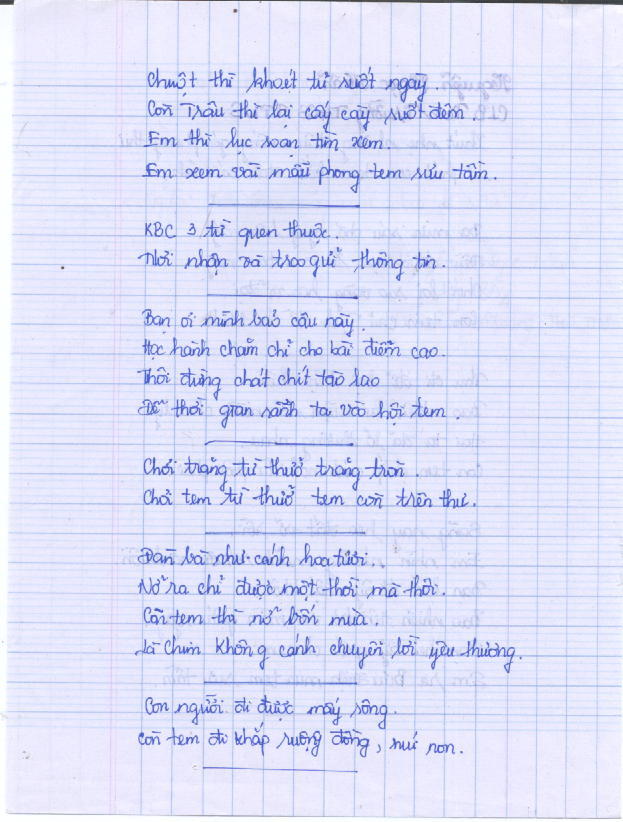 Chuột thì khoét tủ suốt ngày.
Con Trâu thì lại cấy cày suốt đêm.
Em thì lục soạn tìm xem.
Em xem vài mẫu phong tem sưu tầm.
KBC 3 từ quen thuộc.
Nơi nhận và trao gửi thông tin.
Bạn ơi mình bảo câu này.
Học hành chăm chỉ cho bài điểm cao.
Thôi đừng chát chít tào lao
Để thời gian rảnh ta vào hội tem.
Chơi trăng từ thuở trăng tròn.
Chơi tem từ thuở tem còn trên thư.
Đàn bà như cánh hoa tươi.
Nở ra chỉ được một thời mà thôi.
Còn tem thì nở bốn mùa.
Là chim không cánh chuyển lời yêu thương.
Con người đi được mấy sông.
Còn tem đi khắp ruộng đồng, núi non.